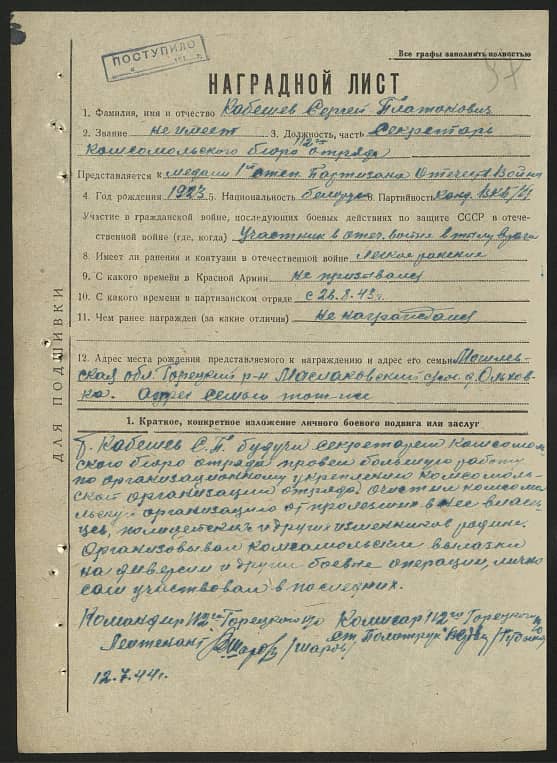 ПОСТУПИЛО
Все графы заполнять полностью
НАГРАДНОЙ ЛИСТ
1. Фамилия, имя и отчество Кабешев Сергей Платонович
2. Звание не имеет 3. Должность, часть Секретарь
комсомольского бюро 112го отряда
Представляется к медали 1ой степ. Партизана Отечеств. Войны
4. Год рождения 1923 5. Национальность белорус 6. Партийность канд. ВКП/б/
Участие в гражданской войне, последующих боевых действиях по защите СССР в отече-
ственной войне (где, когда) Участник в отеч. войне в тылу врага
8. Имеет ли ранения и контузии в отечественной войне легкое ранение
9. С какого времени в Красной Армии не призывался
10. С какого времени в партизанском отряде с 26.8.43г.
11. Чем ранее награжден (за какие отличия) не награждался
12. Адрес места рождения представляемого к награждению и адрес его семьи Могилев-
ская обл. Горецкий р-н Маслаковский д. Ольхов-
ка. Адрес семьи тот-же
ДЛЯ ПОДШИВКИ
1. Краткое, конкретное изложение личного боевого подвига или заслуг
Т. Кабешев С.П. будучи секретарем комсомоль-
ского бюро отряда провел большую работу
по организационному укреплению комсомоль-
ской организации отряда. Очистил комсомо-
льскую организацию от пролезших в нее власов-
цев, полицейских и других изменников родине.
Организовывал комсомольские вылазки
на диверсии и другие боевые операции, лично
сам участвовал в последних.
Командир 112го Горецкого п/о Комиссар 112го Горецкого п/о
Лейтенант Шаров /Шаров/ ст. Политрук
12.7.44г.